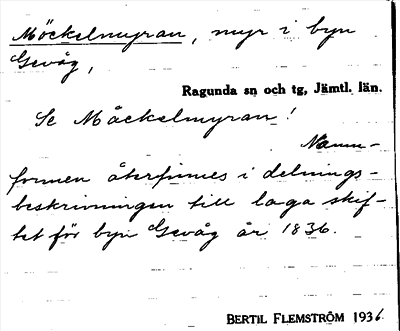 Möckelmyran, myr i byn
Gevåg,
Ragunda sn och tg, Jämtl. län.
Se Måckelmyran!
Namn-
formen återfinnes i delnings-
beskrivningen till laga skif-
tet för byn Gevåg år 1836.
BERTIL FLEMSTRÖM 1936.